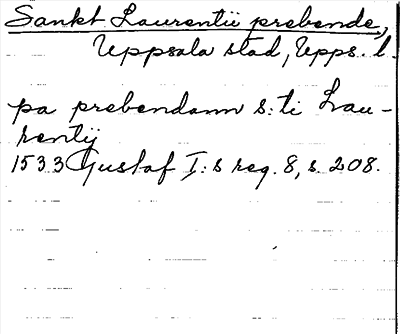 Sankt Laurentii prebende,
Uppsala stad, Upps. l.
pa prebendann s:ti Lau-
rentij
1533 Gustaf I:s reg. 8, s. 208.